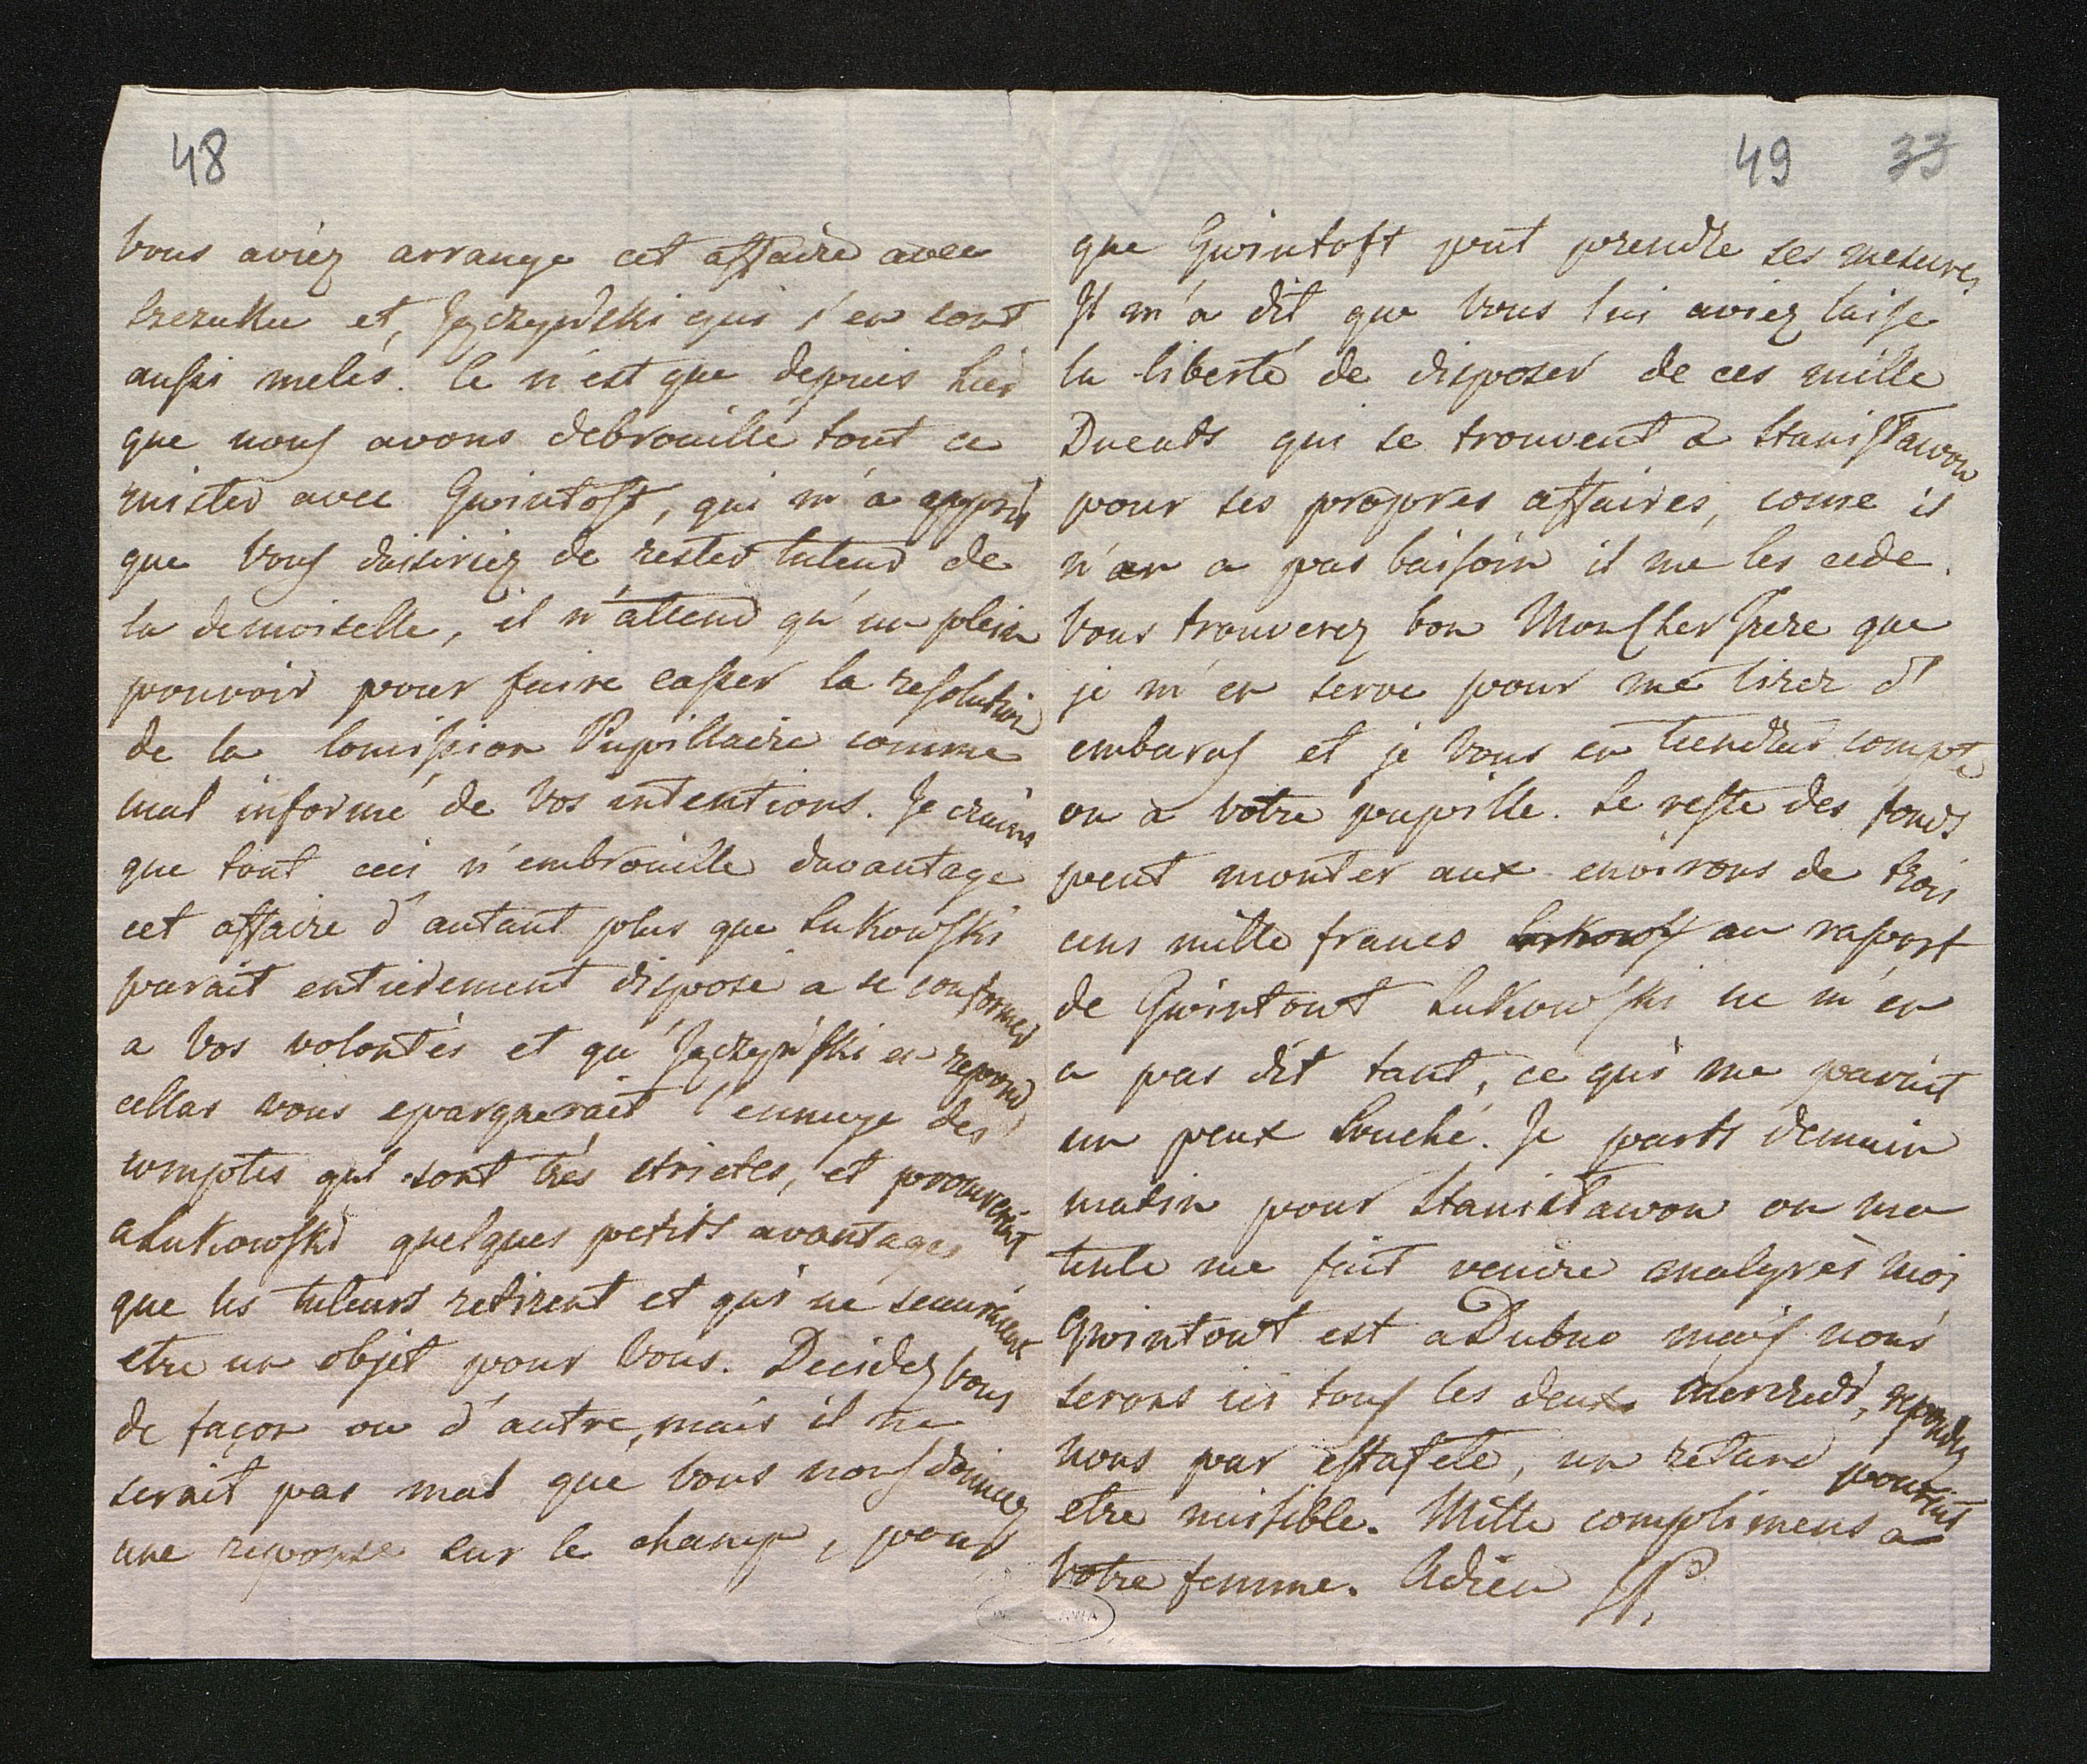 48
Vous aviéz arrangé cet affaire avec
et Jęczyński qui s'en sont
aussi melés. Ce n'est que depuis hier
que nous avons debrouillé tout ce
mister avec Gwintoft, qui m'a appris
que Vous daisiriez de rester tuteur de
la demoiselle, il n'attend qu'un plein
pouvoir pour faire casser la resolution
de la Comission Pupillaire comme
mal informé de Vos intentions. Je crains
que tout ceci n'embrouille davantage
cet affaire d'autant plus que Lukowski
parait entierement disposé a se conformer
a Vos volontés et qu'Jęczyński en repond
cellas vous epargnerait l'ennuye des
comptes qui sont très strictes, et
a Lukowski quelques petits avantages
que les tuteurs retirent et qui ne sauraient
etre un objet pour Vous. Decidez Vous
de façon ou d'autre, mais il ne
serait pas mal que Vous nous donniez
une reponse sur le champ, pour
49 33
que Gwintoft put prendre ses mesures
Il m'a dit que Vous lui aviez laissé
la liberté de disposer de ces mille
Ducats qui se trouvent a Stanisławow
pour ses propres affaires, come il
n'en a pas baisoin il me les cede.
Vous trouverez bon Mon Cher Frere que
je m'en serve pour me tirer d'
embaras et je Vous en tiendrai compte
ou a votre pupille. Le reste des fonds
peut monter aux environs de trois
cens mille francs au raport
de Gwintowt Lukowski ne m'en
a pas dit tant, ce qui me parait
un peux louche. Je parts demain
matin pour Stanisławow ou ma
tente me fait venire malgrès moi
Gwintowt est a Dubno mais nous
serons ici tous les deux mercredi, repondez
nous par estafete, un retard pourrait
etre nuisible. Mille complimens a
Votre femme. Adieu